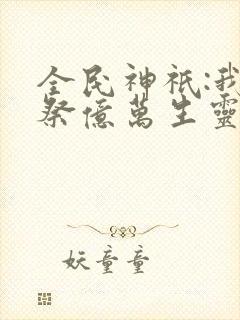 全民神祇:我
祭億萬生靈
妖童童